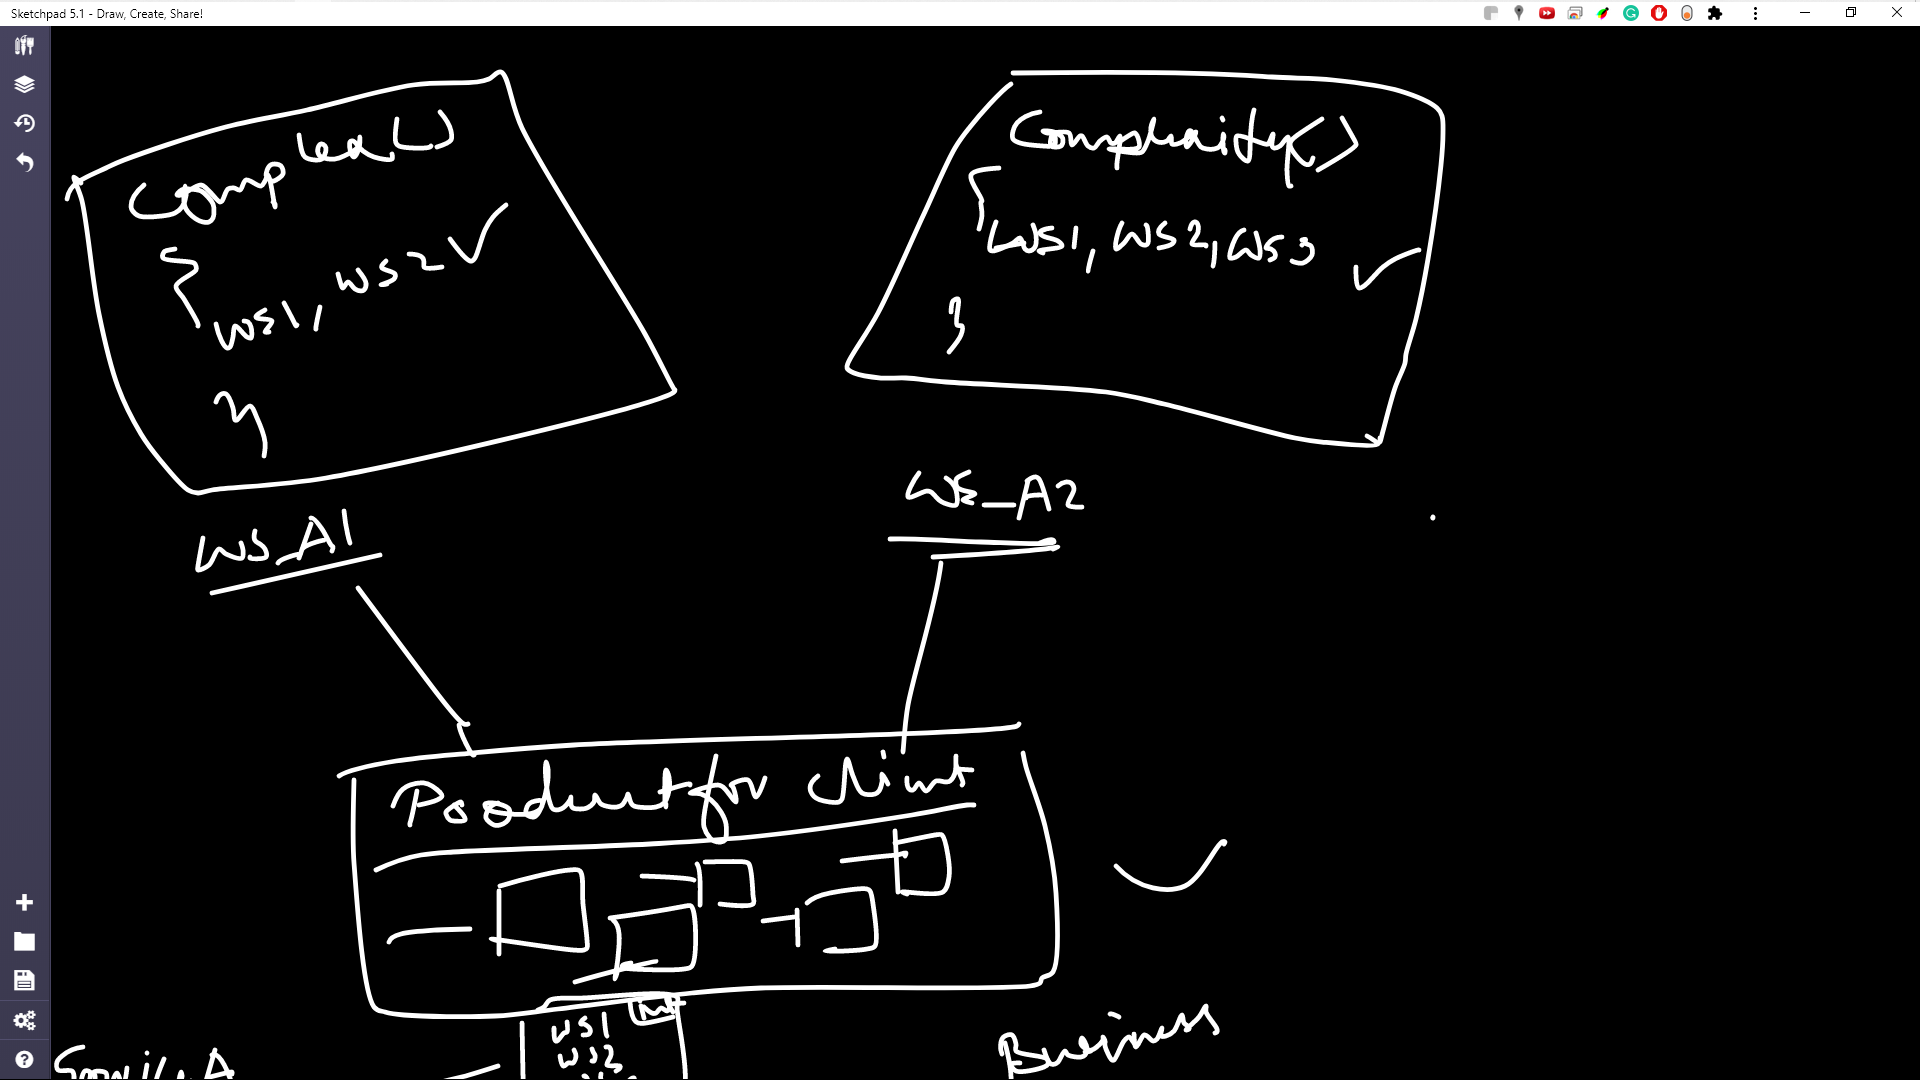 Sketchpad 5.1 - Draw, Create, Share!
Complex()
{
WS1, WS2
}
WS_A1
Complexity()
{
WS1, WS2, WS3
}
WS_A2
Product for client
WS1
WS2
Business